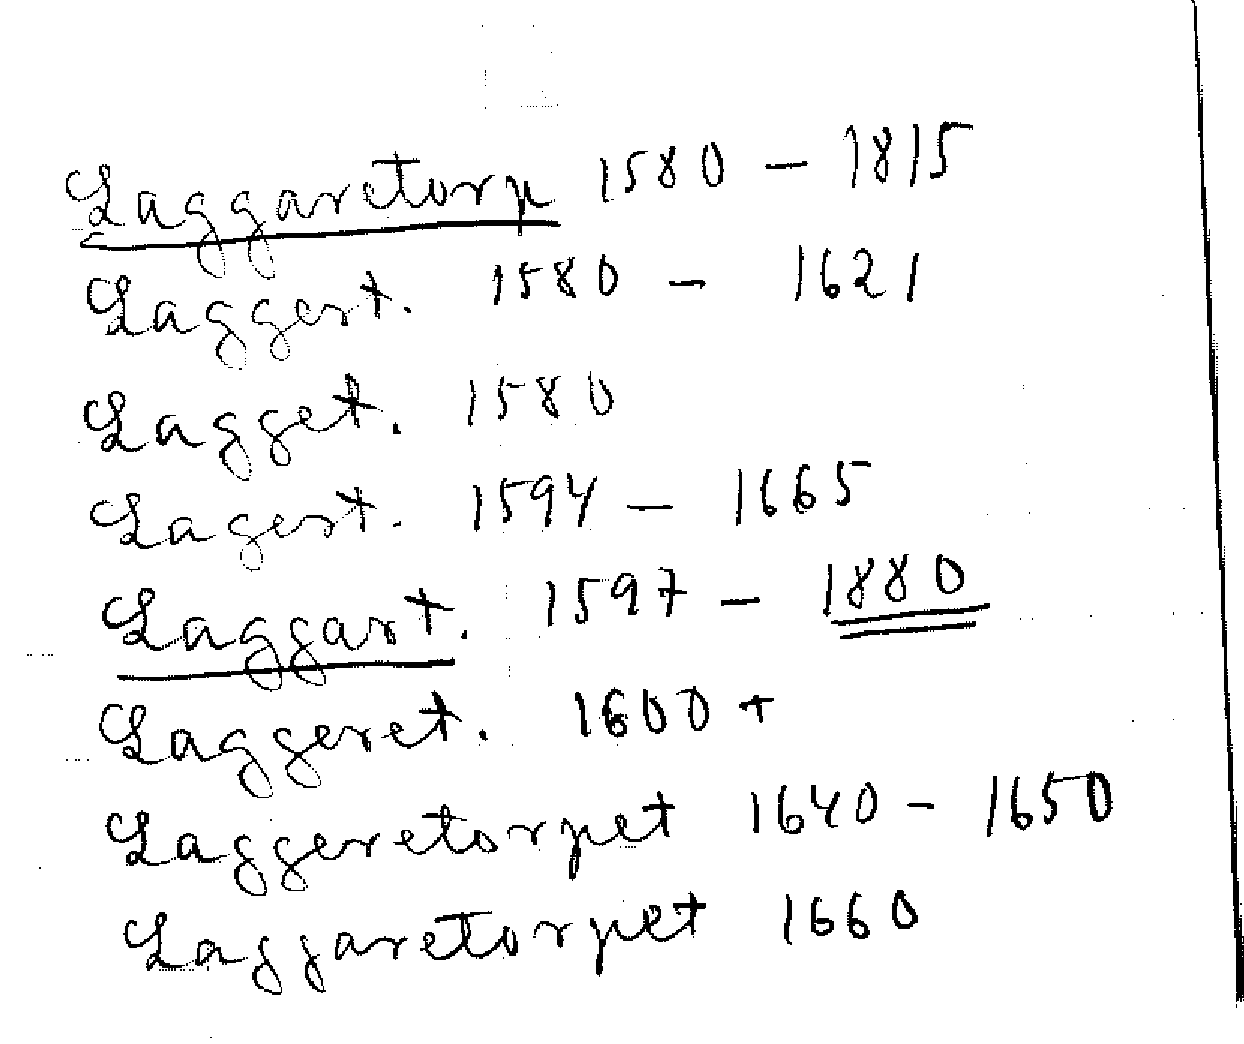 Laggaretorp 1580 – 1815
Laggert. 1580 – 1621
Lagget. 1580
Lagert. 1594 – 1665
Laggart. 1597 – 1880
Laggeret. 1600 +
Laggeretorpet 1640 – 1650
Laggaretorpet 1660